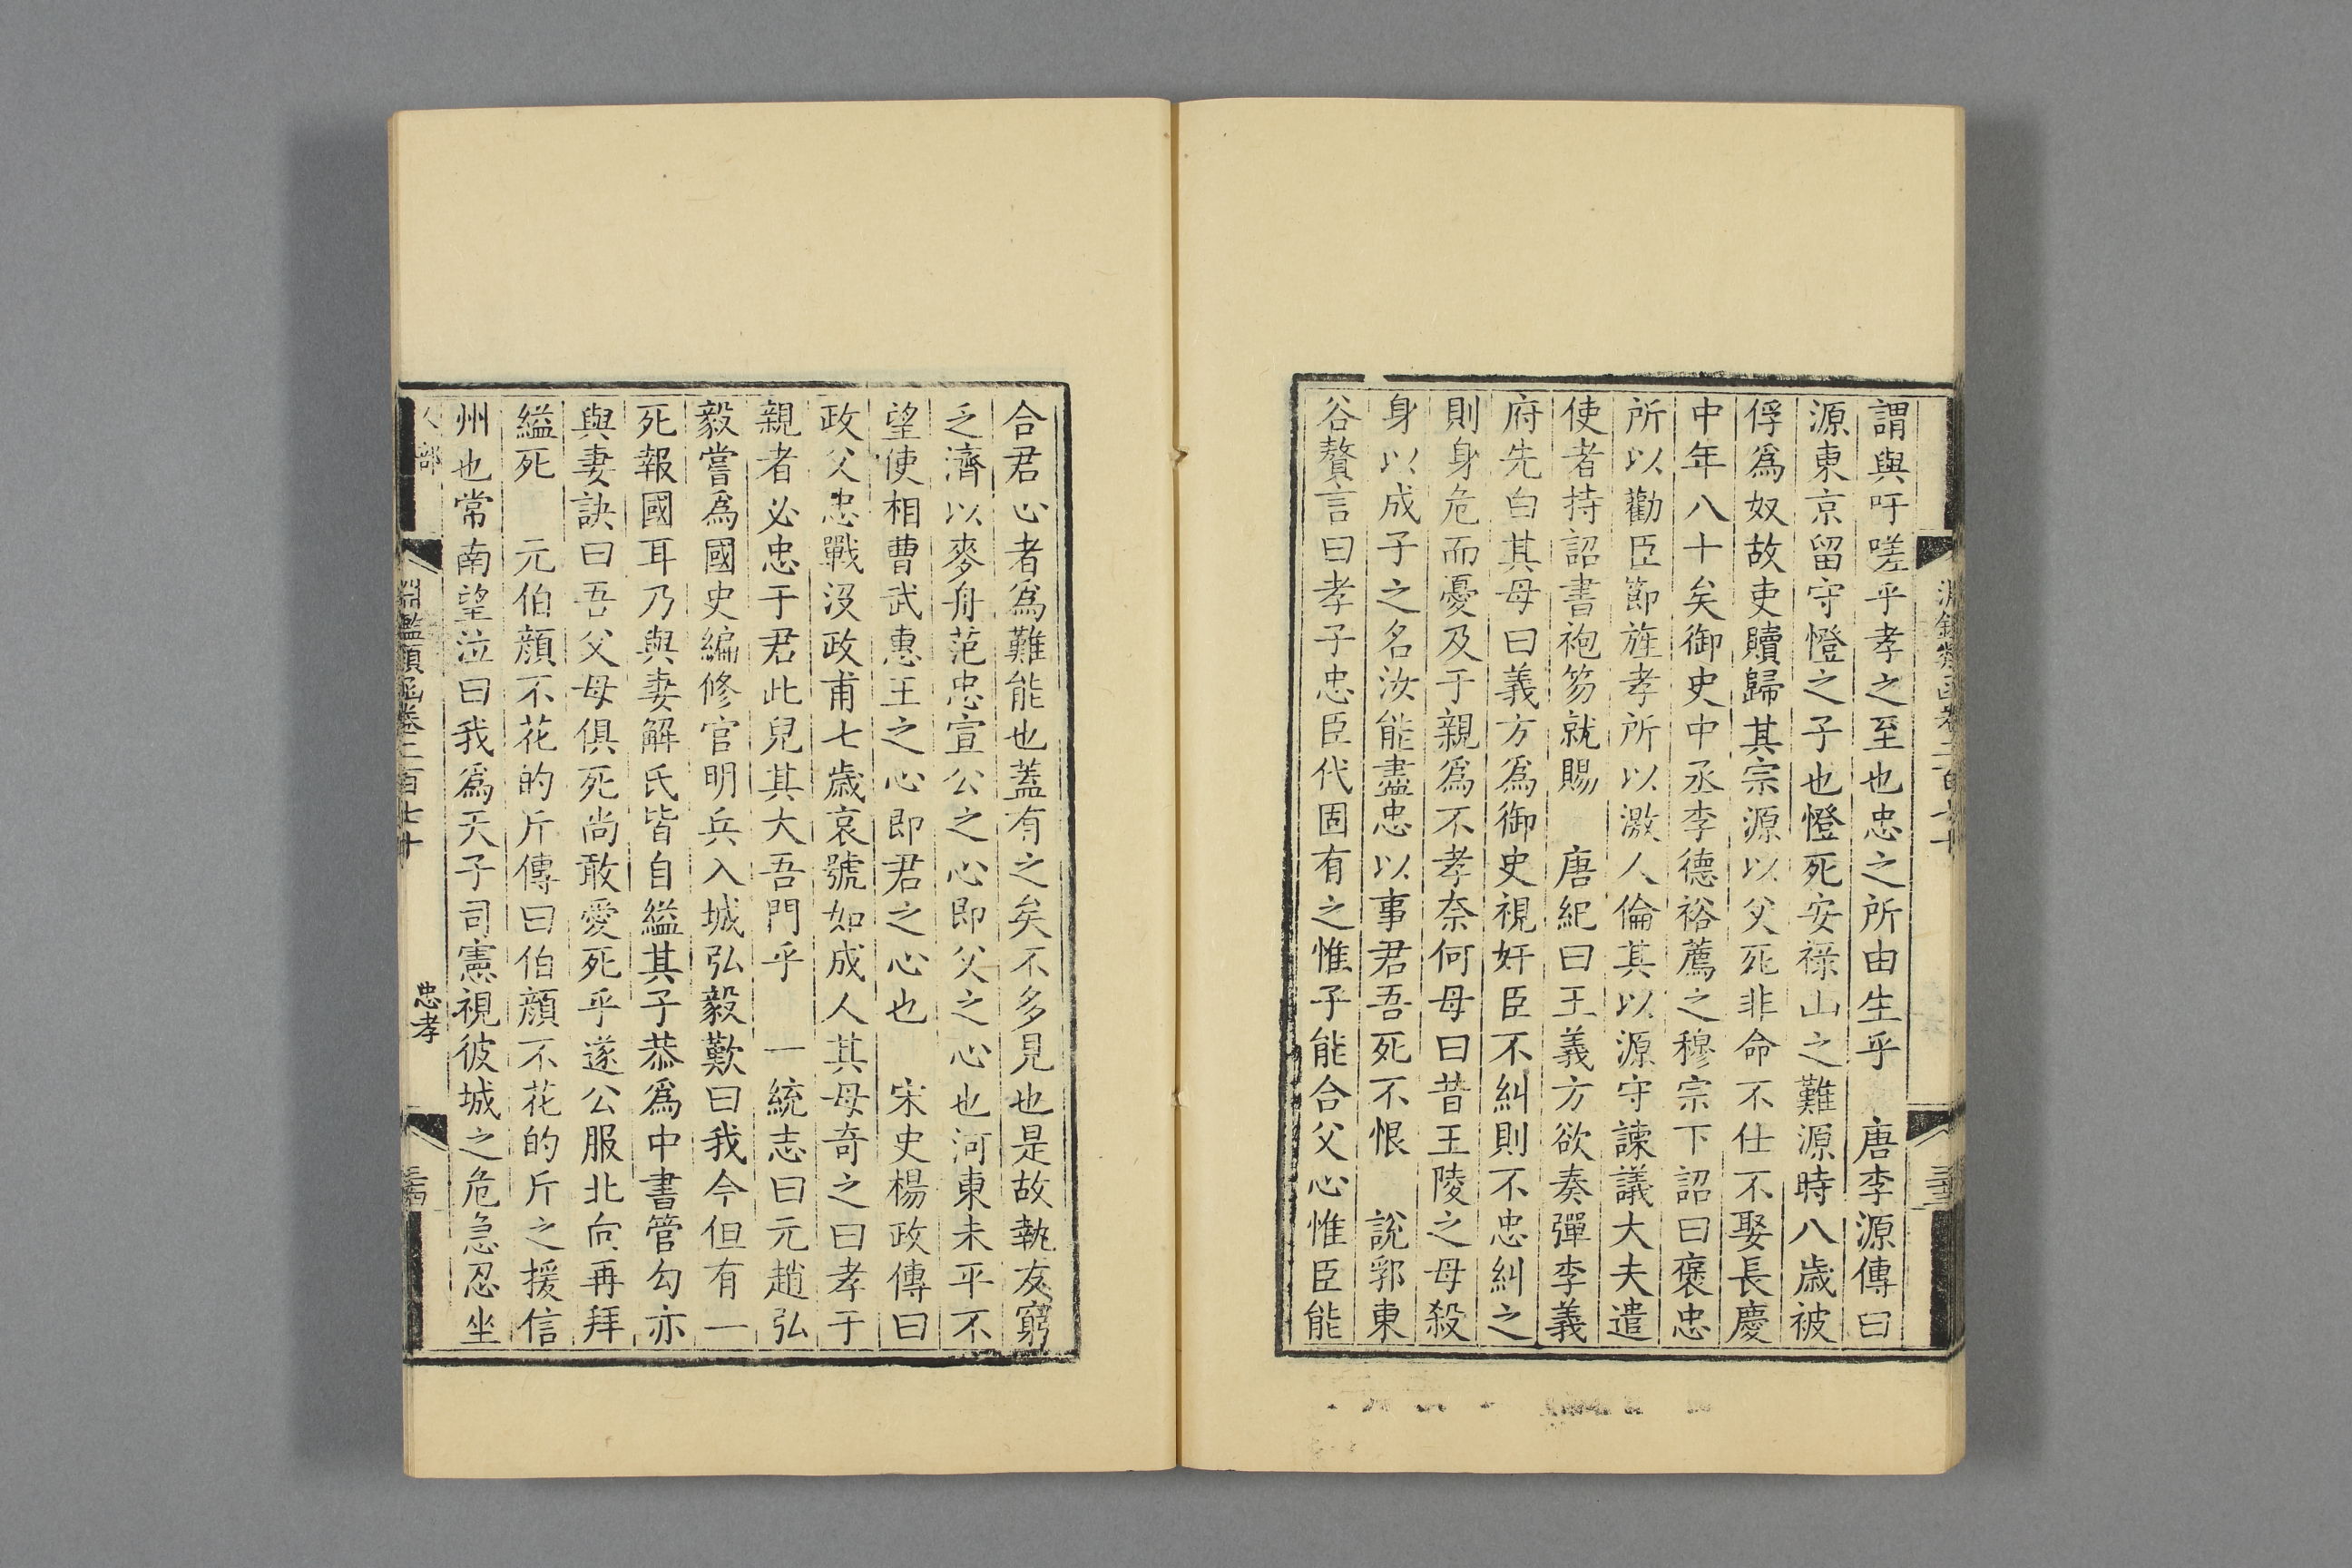 謂與吁嗟乎孝之至也忠之所由生乎　唐李源傳曰
源東京留守憕之子也憕死安祿山之難源時八歲被
俘爲奴故吏贖歸其宗源以父死非命不仕不娶長慶
中年八十矣御史中丞李德裕薦之穆宗下詔曰褒忠
所以勸臣節旌孝所以激人倫其以源守諫議大夫遣
使者持詔書袍笏就賜　唐紀曰王義方欲奏彈李義
府先白其母曰義方爲御史視奸臣不糾則不忠糾之
則身危而憂及于親爲不孝奈何母曰昔王陵之母殺
身以成子之名汝能盡忠以事君吾死不恨　說郛東
谷贅言曰孝子忠臣代固有之惟子能合父心惟臣能
合君心者爲難能也蓋有之矣不多見也是故執友窮
乏濟以麥舟范忠宣公之心即父之心也河東未平不
望使相曹武惠王之心即君之心也　宋史楊政傳曰
政父忠戰沒政甫七歲哀號如成人其母奇之曰孝于
親者必忠于君此兒其大吾門乎　一統志曰元趙弘
毅嘗爲國史編修官明兵入城弘毅歎曰我今但有一
死報國耳乃與妻解氏皆自縊其子恭爲中書管勾亦
與妻訣曰吾父母俱死尚敢愛死乎遂公服北向再拜
縊死　元伯顔不花的斤傳曰伯顔不花的斤之援信
州也常南望泣曰我爲天子司憲視彼城之危急忍坐
人部　淵鑑類函卷二百七十　忠孝